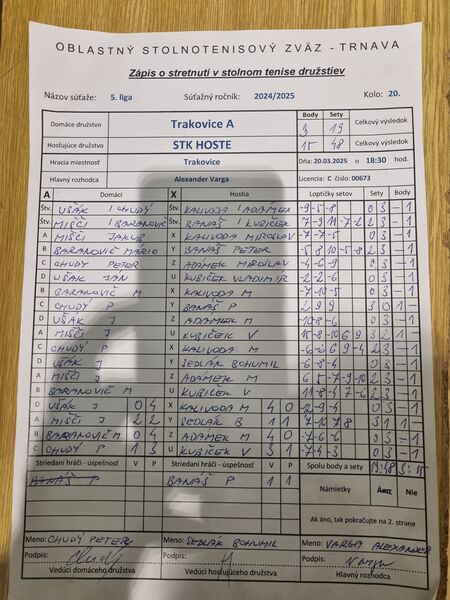 OBLASTNÝ STOLNOTENISOVÝ ZVÄZ - TRNAVA
Zápis o stretnutí v stolnom tenise družstiev
Názov súťaže: 5. liga Súťažný ročník: 2024/2025 Kolo: 20.
Domáce družstvo Trakovice A Body Sety Celkový výsledok
3 19
Hosťujúce družstvo STK HOSTE 15 48 Celkový výsledok
Hracia miestnosť Trakovice Dňa: 20.03.2025 o 18:30 hod.
Hlavný rozhodca Alexander Varga Licencia: C číslo: 00673
A Domáci X Hostia Loptičky setov Sety Body
Štv. UŠÁK / CHUDÝ Štv. KALIVODA / ADÁMEK -9-5-8 03 -1
Štv. MIŠČÍ / BARANOVIČ Štv. BANÁŠ / KUBÍČEK 23 -1
A MIŠČÍ JAKUB X KALIVODA MIROSLAV -7-7-5 03 -1
B BARANOVIČ MARIO Y BANÁŠ PETER 23 -1
C CHUDÝ PETER Z ADÁMEK MIROSLAV -4-6-9 03 -1
D UŠÁK JÁN U KUBÍČEK VLADIMÍR -2-2-6 03 -1
B BARANOVIČ M X KALIVODA M -7-10-5 03 -1
C CHUDÝ P Y BANÁŠ P 2 9 9 30 1-
D UŠÁK J Z ADAMEK M -10-8-6 03 -1
A MIŠČÍ J U KUBÍČEK V 32 1-
C CHUDÝ P X KALIVODA M -6-6 6 9-4 23 -1
D UŠÁK J Y SEDLÁK BOHUMIL -6-8-4 03 -1
A MIŠČÍ J Z ADAMEK M 6 5-7-9-10 23 -1
B BARANOVIČ M U KUBÍČEK V 23 -1
D UŠÁK J 0 4 X KALIVODA M 4 0 -9-4 03 -1
A MIŠČÍ J 2 2 Y SEDLÁK B 1 1 31 1
B BARANOVIČ M 0 4 Z ADAMEK M 4 0 -7-6-6 03 -1
C CHUDÝ P 1 3 U KUBÍČEK V 3 1 -7-4-3 03 -1
Striedaní hráči - úspešnosť V P Striedaní hráči - úspešnosť V P Spolu body a sety 19:48 3:15
BANÁŠ P BANÁŠ P 1 1 Námietky Áno Nie
Ak áno, tak pokračujte na 2. strane
Meno: CHUDÝ PETER Meno: SEDLÁK BOHUMIL Meno: VARGA ALEXANDER
Podpis: Podpis: Podpis:
Vedúci domáceho družstva Vedúci hosťujúceho družstva Hlavný rozhodca